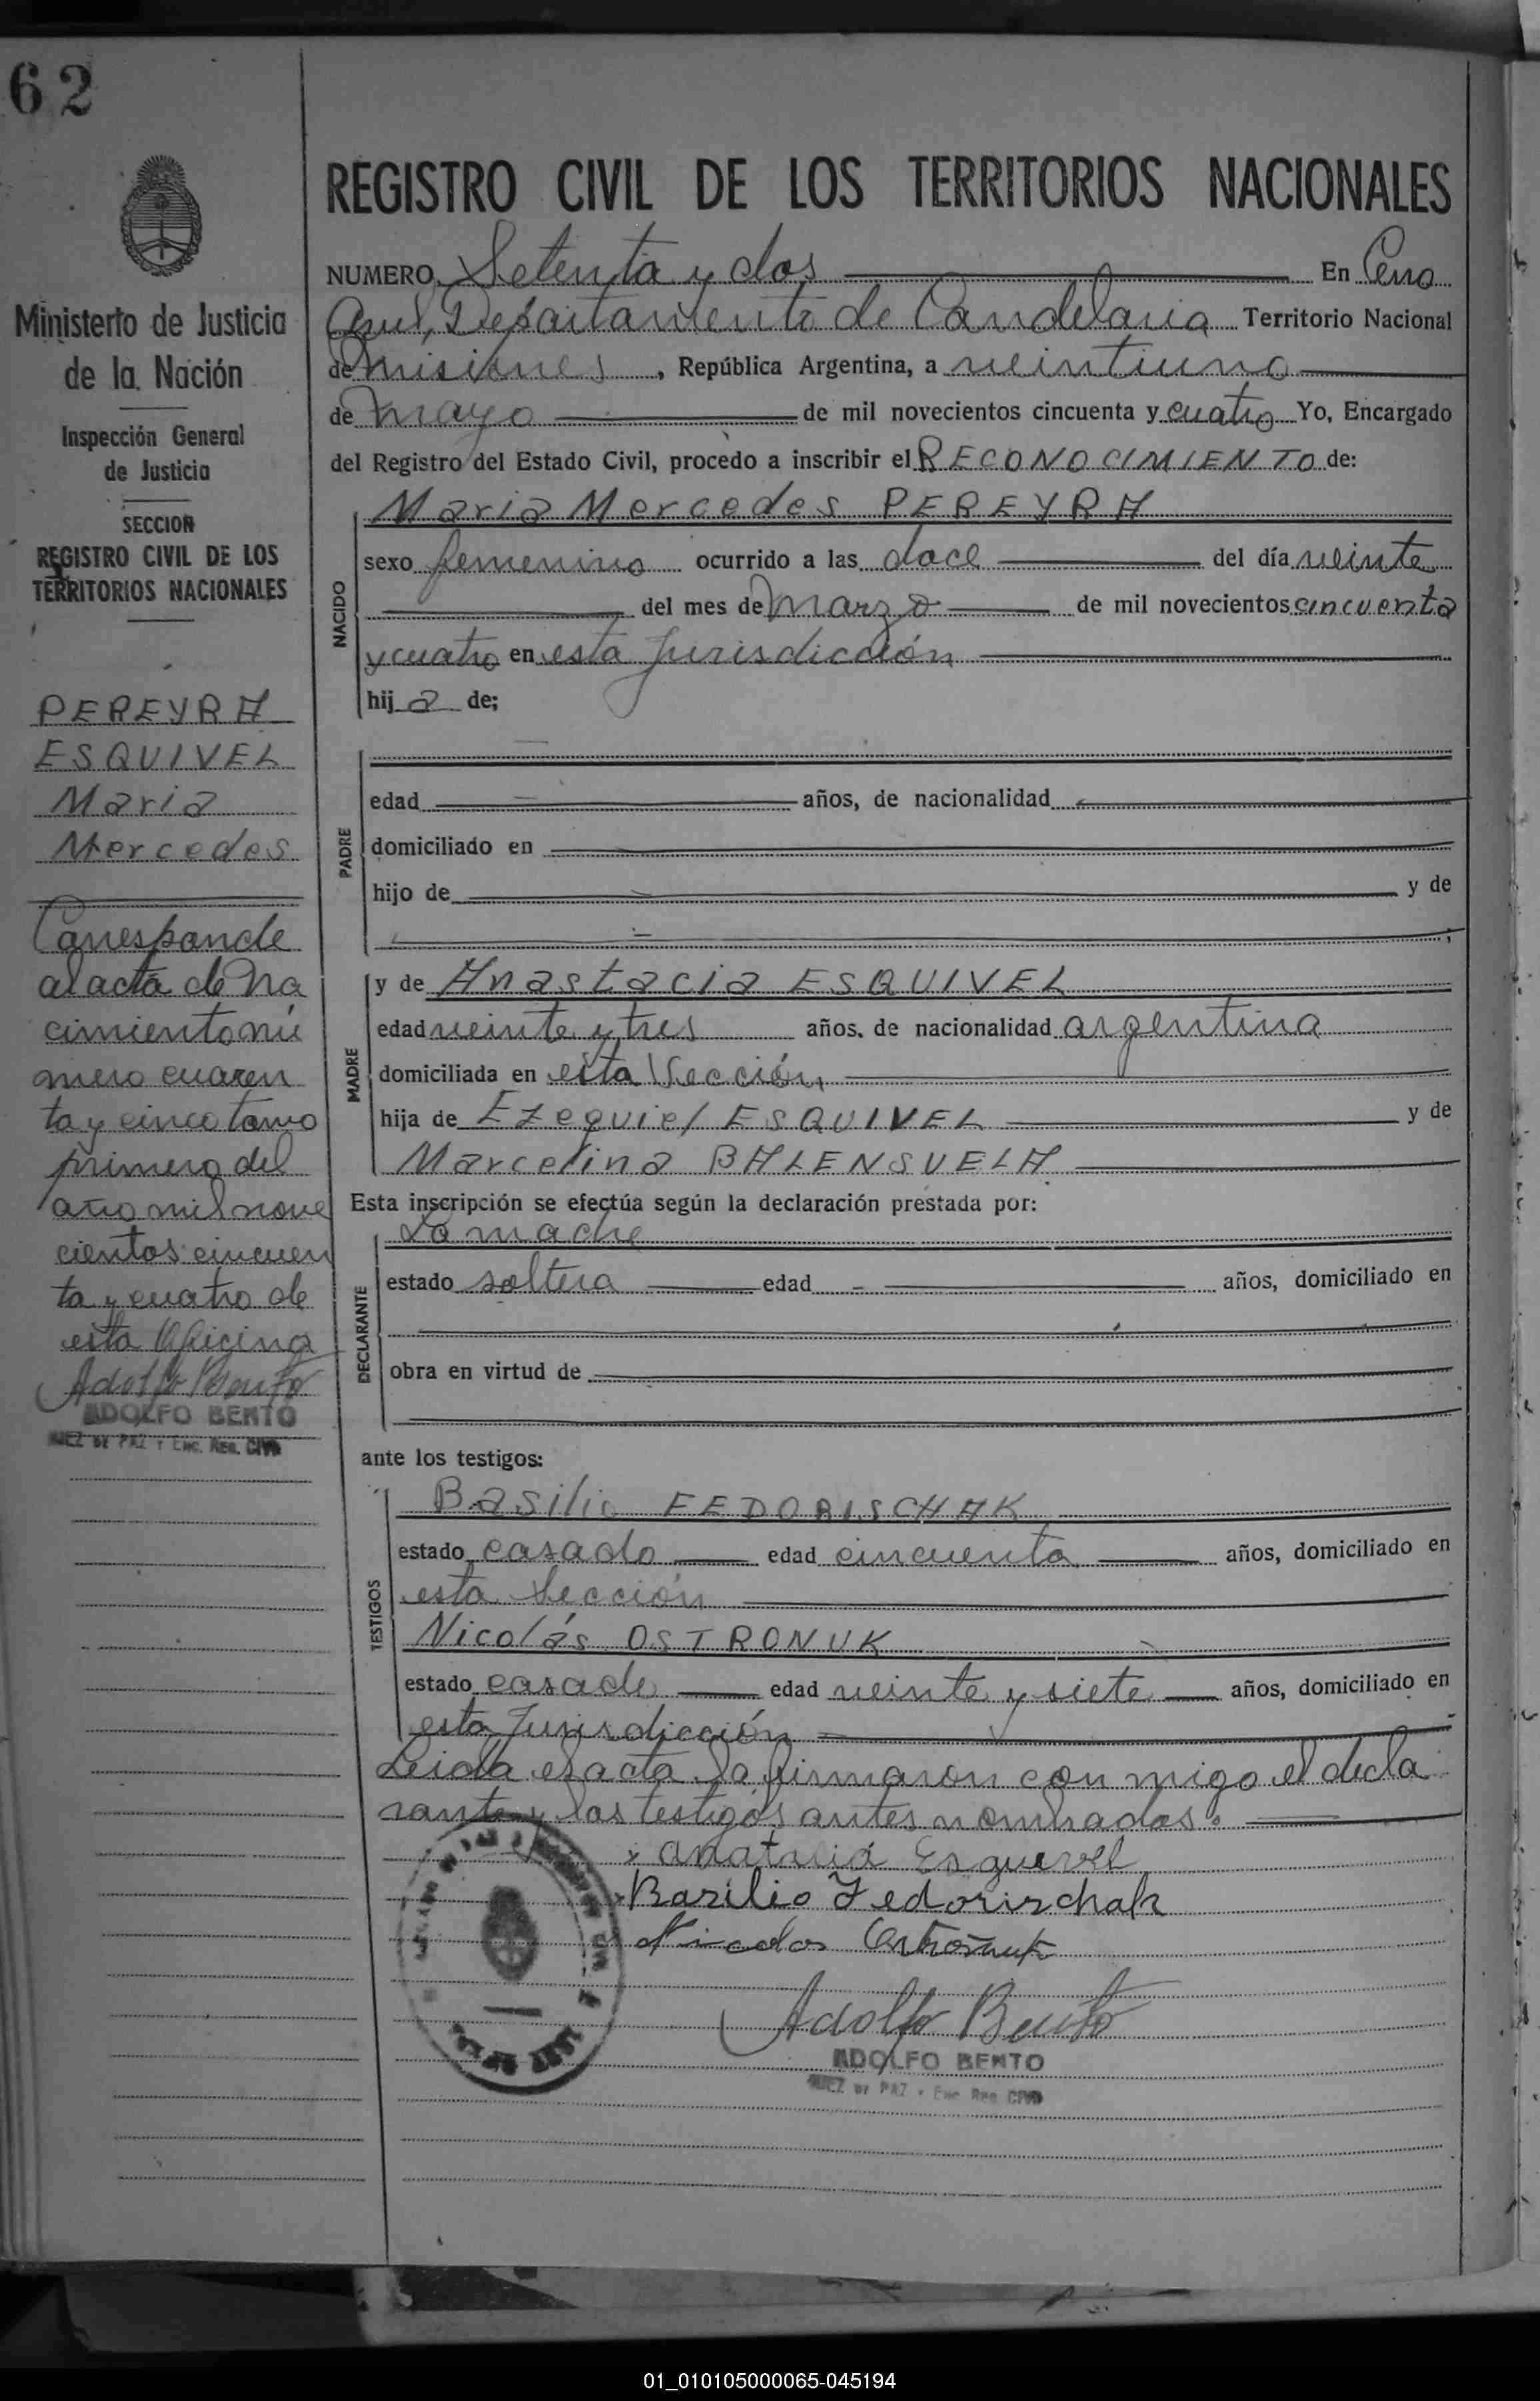 62
Ministerio de Justicia
de la Nación
Inspección General
de Justicia
SECCION
REGISTRO CIVIL DE LOS
TERRITORIOS NACIONALES
PEREYRA
ESQUIVEL
Maria
Mercedes
Corresponde
al acta de na
cimiento nú
mero cuaren
ta y cinco tomo
primero del
año mil nove
cientos cincuen
ta y cuatro de
esta Oficina
Adolfo Bento
ADOLFO BENTO
JUEZ DE PAZ Y ENC. REG. CIVIL
REGISTRO CIVIL DE LOS TERRITORIOS NACIONALES
NUMERO Setenta y dos En Cerro
Azul, Departamento de Candelaria Territorio Nacional
de Misiones, República Argentina, a veintiuno
de Mayo de mil novecientos cincuenta y cuatro Yo, Encargado
del Registro del Estado Civil, procedo a inscribir el RECONOCIMIENTO de:
NACIDO
Maria Mercedes PEREYRA
sexo femenino ocurrido a las doce del día veinte
del mes de Marzo de mil novecientos cincuenta
y cuatro en esta Jurisdicción
hija de;
PADRE
edad años, de nacionalidad
domiciliado en
hijo de y de
;
MADRE
y de Anastacia ESQUIVEL
edad veinte y tres años, de nacionalidad argentina
domiciliada en esta Sección
hija de Ezequiel ESQUIVEL y de
Marcelina BALENSUELA
Esta inscripción se efectúa según la declaración prestada por:
DECLARANTE
La madre
estado soltera edad años, domiciliado en
obra en virtud de
ante los testigos:
TESTIGOS
Basilio FEDORISCHAK
estado casado edad cincuenta años, domiciliado en
esta Sección
Nicolás OSTRONUK
estado casado edad veinte y siete años, domiciliado en
esta Jurisdicción
Leida el acta la firmaron con migo el decla
rante y los testigos antes nombrados.
Esquevel
Basilio Fedorischak
Nicolas Ostronuk
Adolfo Bento
ADOLFO BENTO
JUEZ DE PAZ Y ENC. REG. CIVIL
01_010105000065-045194